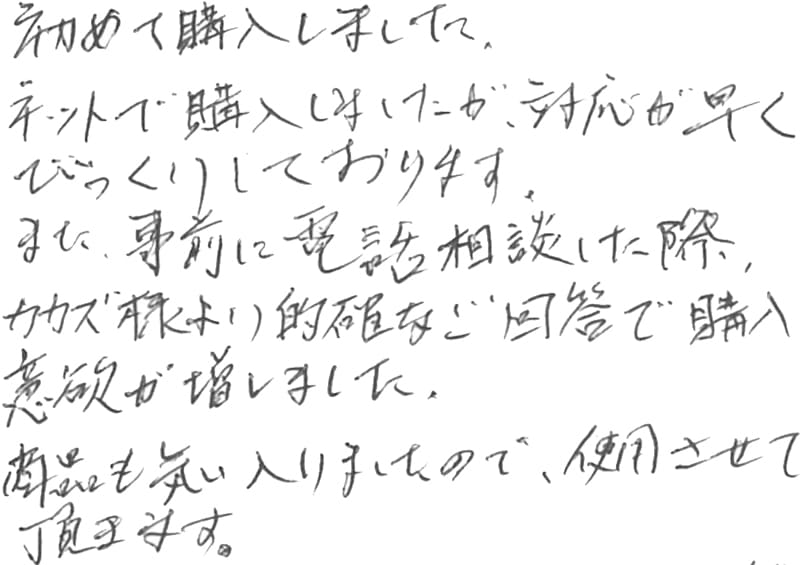 初めて購入しました。
ネットで購入しましたが、対応が早く
びっくりしております。
また、事前に電話相談した際、
カカズ様より的確なご回答で購入
意欲が増しました。
商品も気い入りましたので、使用させて
頂きます。